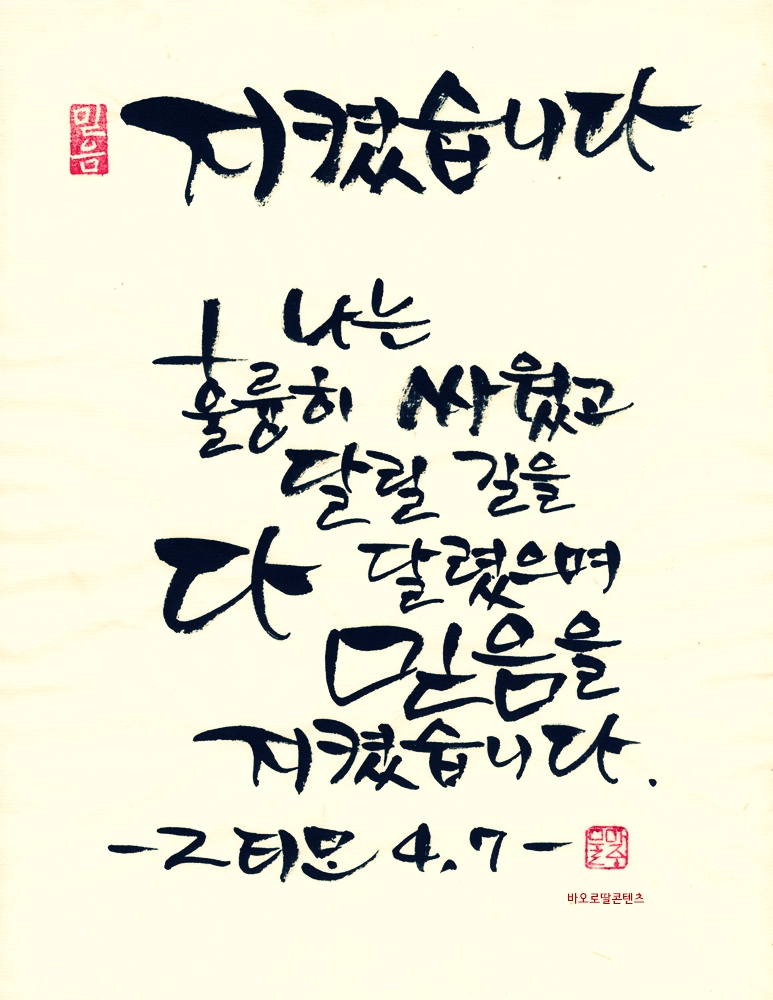 믿음
지켰습니다
나는
훌륭히 싸웠고
달릴 길을
다 달렸으며
믿음을
지켰습니다.
-2티모 4.7-
바오로딸콘텐츠